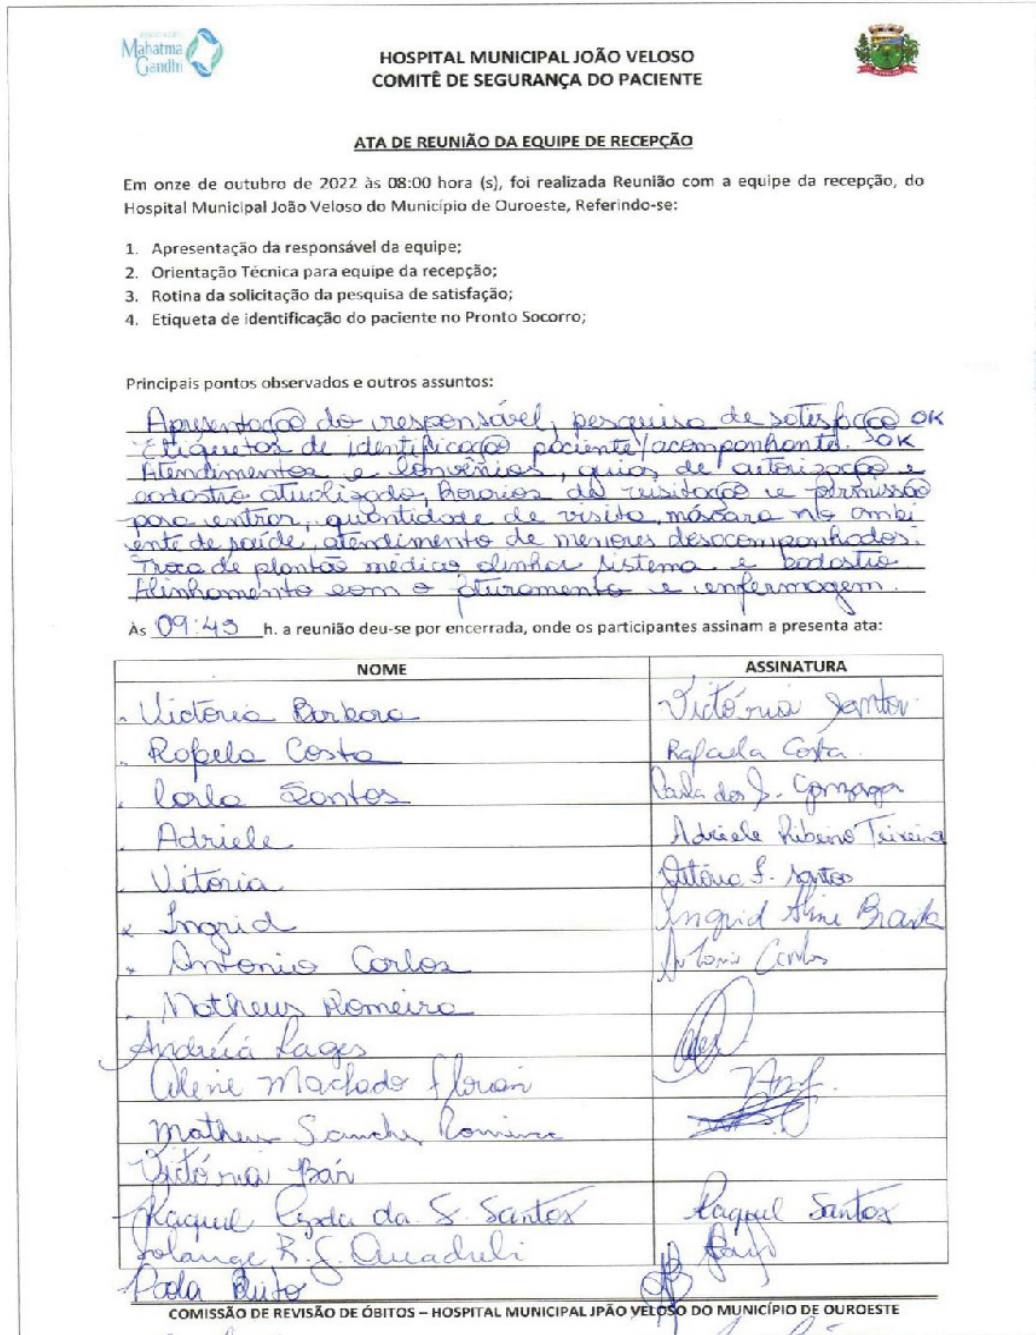 ASSOCIAÇÃO
Mahatma
Gandhi
HOSPITAL MUNICIPAL JOÃO VELOSO
COMITÊ DE SEGURANÇA DO PACIENTE
ATA DE REUNIÃO DA EQUIPE DE RECEPÇÃO
Em onze de outubro de 2022 às 08:00 hora (s), foi realizada Reunião com a equipe da recepção, do
Hospital Municipal João Veloso do Município de Ouroeste, Referindo-se:
1. Apresentação da responsável da equipe;
2. Orientação Técnica para equipe da recepção;
3. Rotina da solicitação da pesquisa de satisfação;
4. Etiqueta de identificação do paciente no Pronto Socorro;
Principais pontos observados e outros assuntos:
Apresentação do responsável, pesquisa de satisfação OK
Etiquetas de identificação paciente/acompanhante. OK
Atendimentos e Convênios, guias de autorização e
cadastro atualizado, Horarios de visitação e permissão
para entrar, quantidade de visita, máscara no ambi
ente de saúde, atendimento de menores desacompanhados.
Troca de plantão médico alinhar sistema e cadastro
Alinhamento com o faturamento e enfermagem.
Às 09:45 h. a reunião deu-se por encerrada, onde os participantes assinam a presenta ata:
NOME ASSINATURA
Victória Barbara Victória Santos
Rafaela Costa Rafaela Costa
Carla Santos Carla dos S. Gonzaga
Adriele Adriele Ribeiro Teixeira
Vitoria Vitória F. Santos
Ingrid Ingrid Aline
Antonio Carlos Antonio Carlos
Matheus Romeira
Andréia Lages
Alene Machado
Matheus Sanches Romeira
Victória
Raquel da S. Santos Raquel Santos
Solange R. S.
Paola Brito
COMISSÃO DE REVISÃO DE ÓBITOS – HOSPITAL MUNICIPAL JPÃO VELOSO DO MUNICÍPIO DE OUROESTE